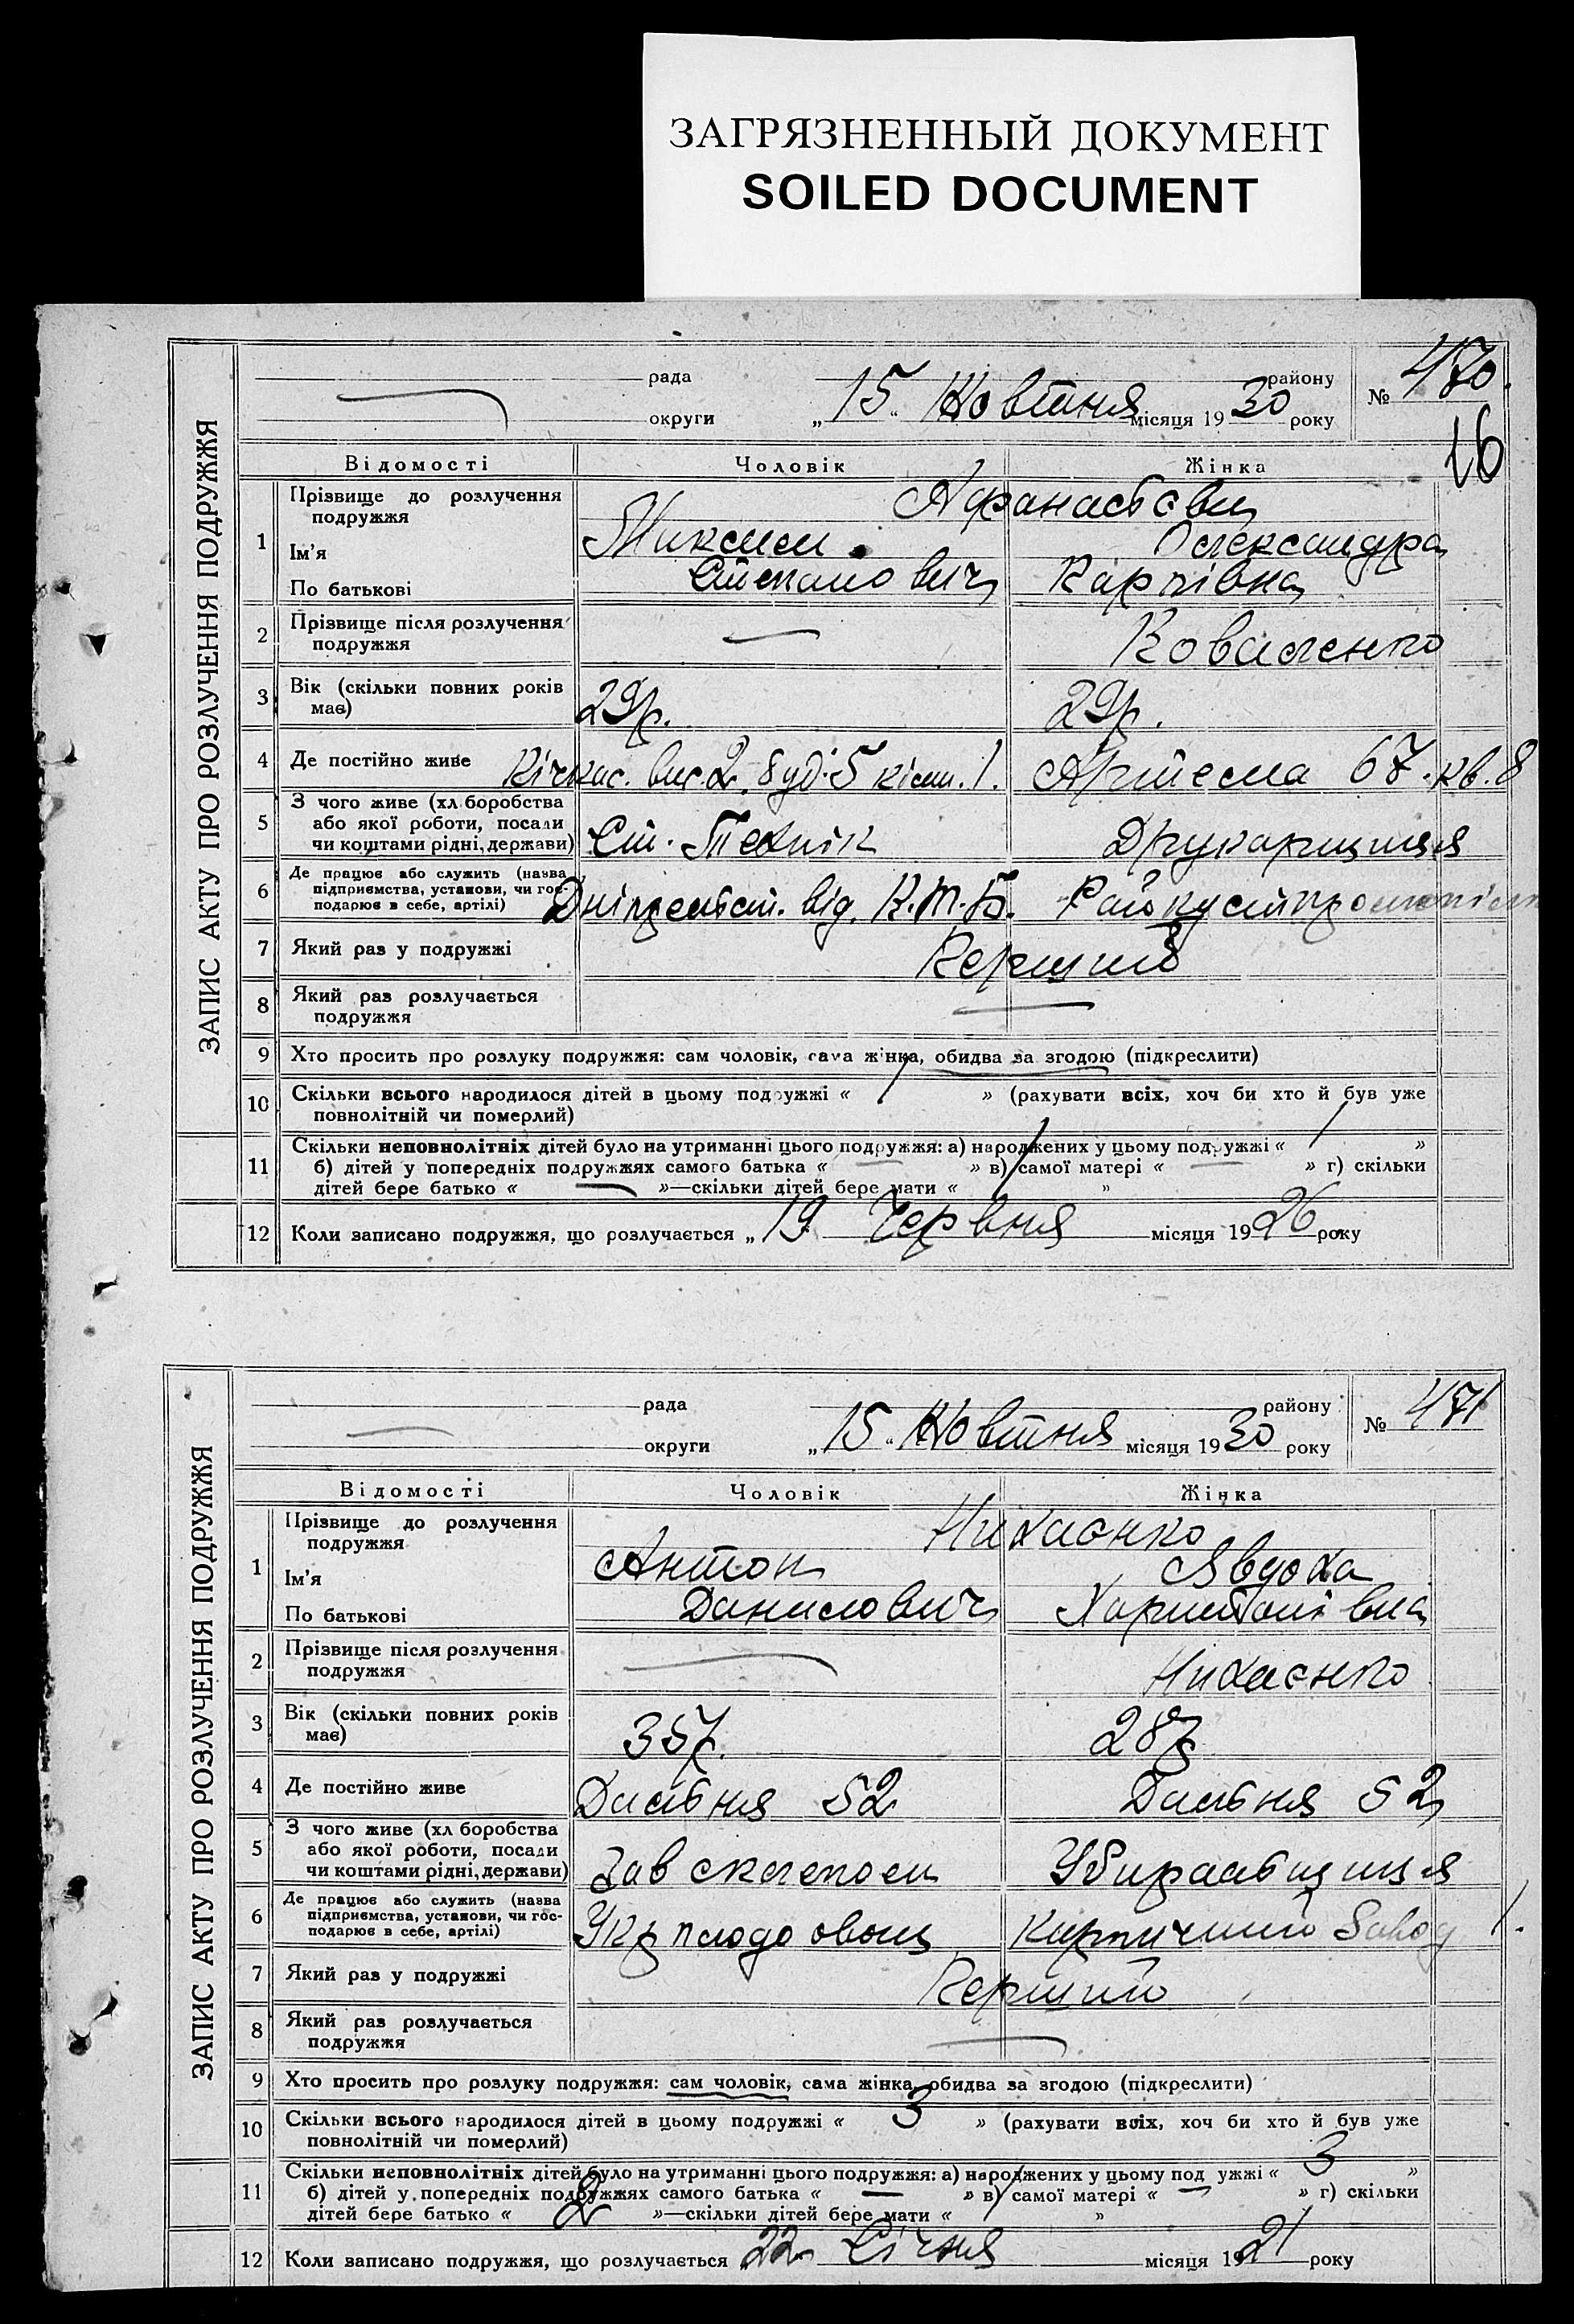 ЗАГРЯЗНЕННЫЙ ДОКУМЕНТ
SOILED DOCUMENT
ЗАПИС АКТУ ПРО РОЗЛУЧЕННЯ ПОДРУЖЖЯ
рада району № 470.
округи „15" Жовтня місяця 1930 року
16
Відомості Чоловік Жінка
1 Прізвище до розлучення подружжя Афанасьєви
Ім'я Максим Олександра
По батькові Степанович Карпівна
2 Прізвище після розлучення подружжя — Коваленко
3 Вік (скільки повних років має) 29р. 29р.
4 Де постійно живе Кічкас. вис. 2. буд. 5 кімн. 1. Артема 67. кв. 8
5 З чого живе (хл.боробства
або якої роботи, посади
чи коштами рідні, держави) Ст. Технік Друкарщиця
6 Де працює або служить (назва
підприємства, установи, чи гос-
подарює в себе, артілі) від. К.Т.Б.
7 Який раз у подружжі Перший
8 Який раз розлучається
подружжя —
9 Хто просить про розлуку подружжя: сам чоловік, сама жінка, обидва за згодою (підкреслити)
10 Скільки всього народилося дітей в цьому подружжі « 1 » (рахувати всіх, хоч би хто й був уже
повнолітній чи померлий)
11 Скільки неповнолітніх дітей було на утриманні цього подружжя: а) народжених у цьому подружжі « 1 »
б) дітей у попередніх подружжях самого батька « — » в) самої матері « — » г) скільки
дітей бере батько « — »—скільки дітей бере мати « 1 »
12 Коли записано подружжя, що розлучається „19 Червня місяця 1926 року
ЗАПИС АКТУ ПРО РОЗЛУЧЕННЯ ПОДРУЖЖЯ
рада району № 471
округи „15" Жовтня місяця 1930 року
Відомості Чоловік Жінка
1 Прізвище до розлучення
подружжя Нихаєнко
Ім'я Антон Явдоха
По батькові Данилович Харитонівна
2 Прізвище після розлучення
подружжя — Нихаєнко
3 Вік (скільки повних років
має) 35р. 28р
4 Де постійно живе Дальня 52 Дальня 52
5 З чого живе (хл.боробства
або якої роботи, посади
чи коштами рідні, держави) Зав складом Убиральщиця
6 Де працює або служить (назва
підприємства, установи, чи гос-
подарює в себе, артілі) Укрплодоовощ Кирпичний завод 1.
7 Який раз у подружжі Перший
8 Який раз розлучається
подружжя —
9 Хто просить про розлуку подружжя: сам чоловік, сама жінка, обидва за згодою (підкреслити)
10 Скільки всього народилося дітей в цьому подружжі « 3 » (рахувати всіх, хоч би хто й був уже
повнолітній чи померлий)
11 Скільки неповнолітніх дітей було на утриманні цього подружжя: а) народжених у цьому подружжі « 3 »
б) дітей у попередніх подружжях самого батька « — » в) самої матері « — » г) скільки
дітей бере батько « 2 »—скільки дітей бере мати « 1 »
12 Коли записано подружжя, що розлучається „22 Січня місяця 1921 року